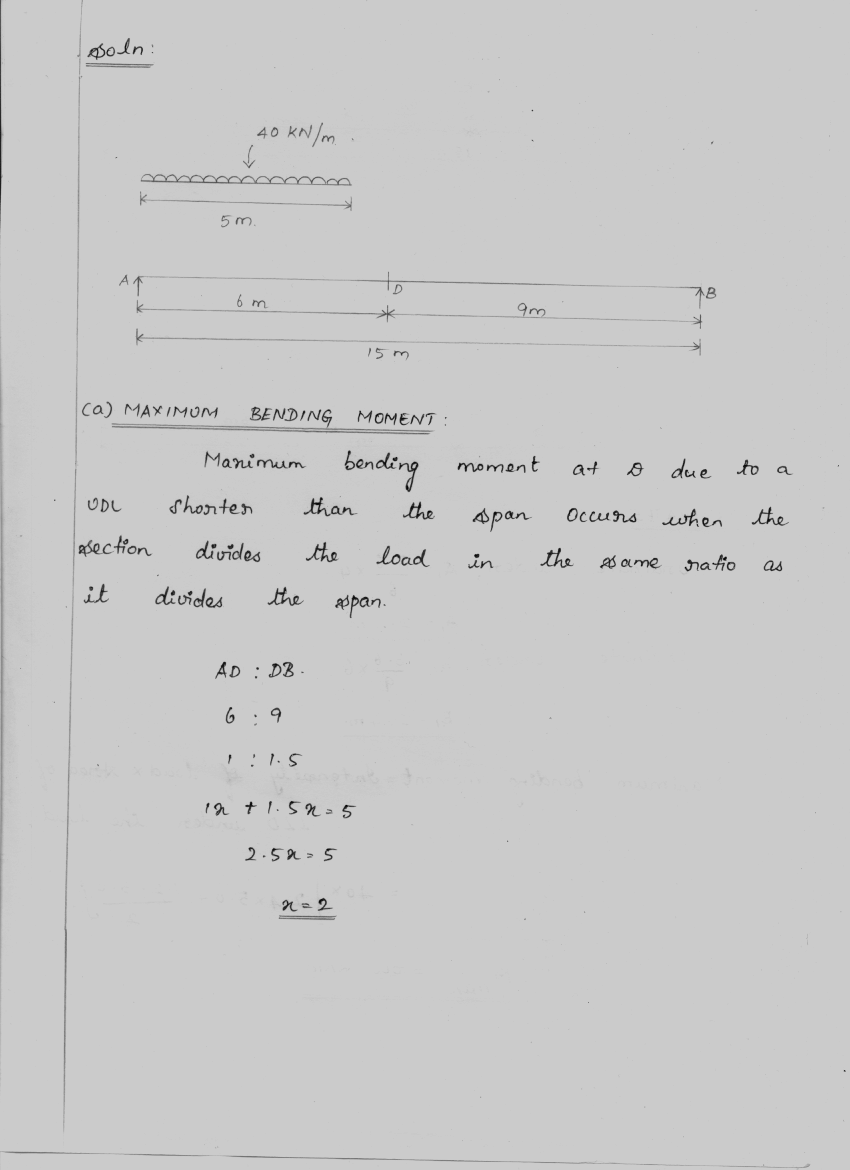 Soln:
40 KN/m.
5 m.
A D B
6 m 9m
15 m
(a) MAXIMUM BENDING MOMENT:
Maximum bending moment at D due to a
UDL shorter than the span occurs when the
section divides the load in the same ratio as
it divides the span.
AD : DB.
6 : 9
1 : 1.5
1x + 1.5x = 5
2.5x = 5
x = 2